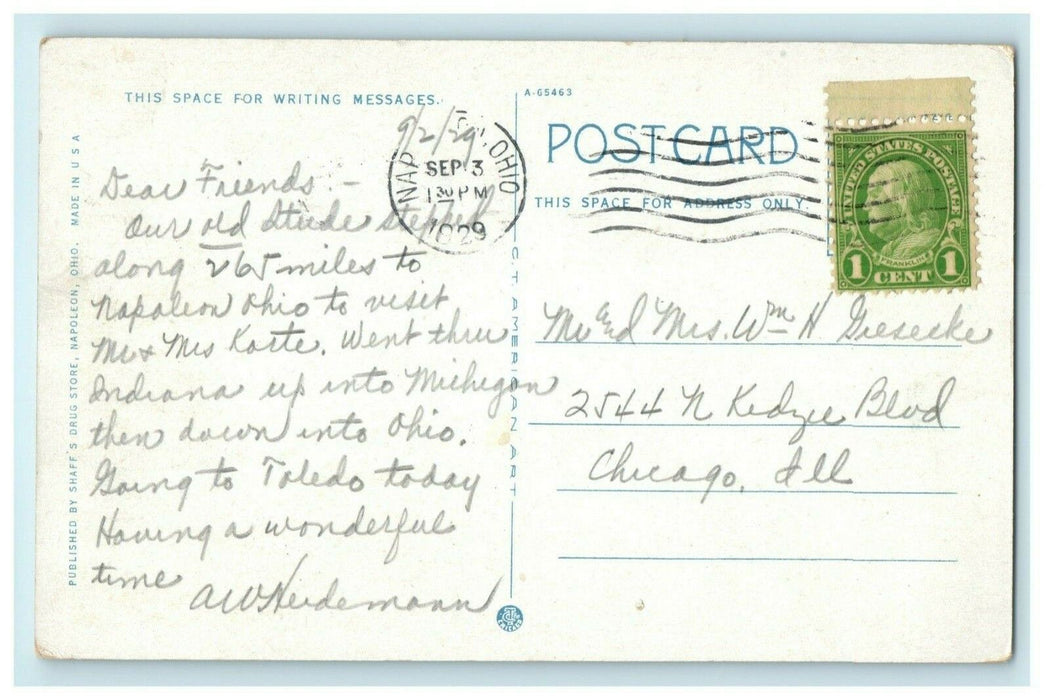 THIS SPACE FOR WRITING MESSAGES.
9/2/29
Dear Friends –
Our old Stude stepped
along 265 miles to
Napoleon Ohio to visit
Mr & Mrs Koste. Went thru
Indiana up into Michigan
then down into Ohio.
Going to Toledo today
Having a wonderful
time
AW Heidemann
PUBLISHED BY SHAFF'S DRUG STORE, NAPOLEON, OHIO. MADE IN U S A
A-65463
POST CARD
THIS SPACE FOR ADDRESS ONLY.
NAP OHIO
SEP 3
1 30 PM
1929
UNITED STATES POSTAGE
FRANKLIN
1 CENT 1
Mr and Mrs. Wm H Giesecke
2544 N Kedzie Blvd
Chicago, Ill
CT AMERICAN ART
CHICAGO